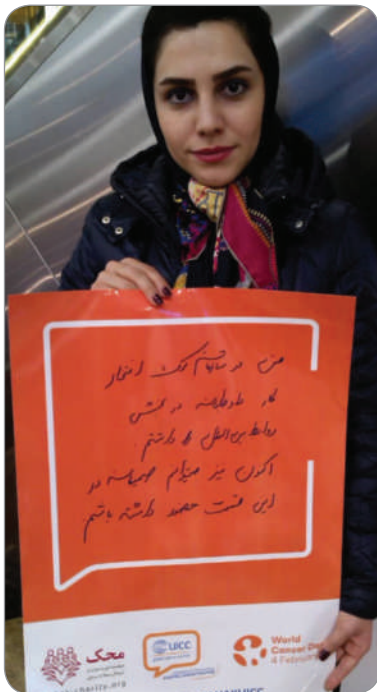 من در سازمان محک افتخار
کار داوطلبانه در بخش
روابط بین الملل را داشتم.
اکنون نیز میتوانم صمیمانه در
این قسمت حضور داشته باشم.
محک
uicc
World
Cancer Day
4 February
charity.org